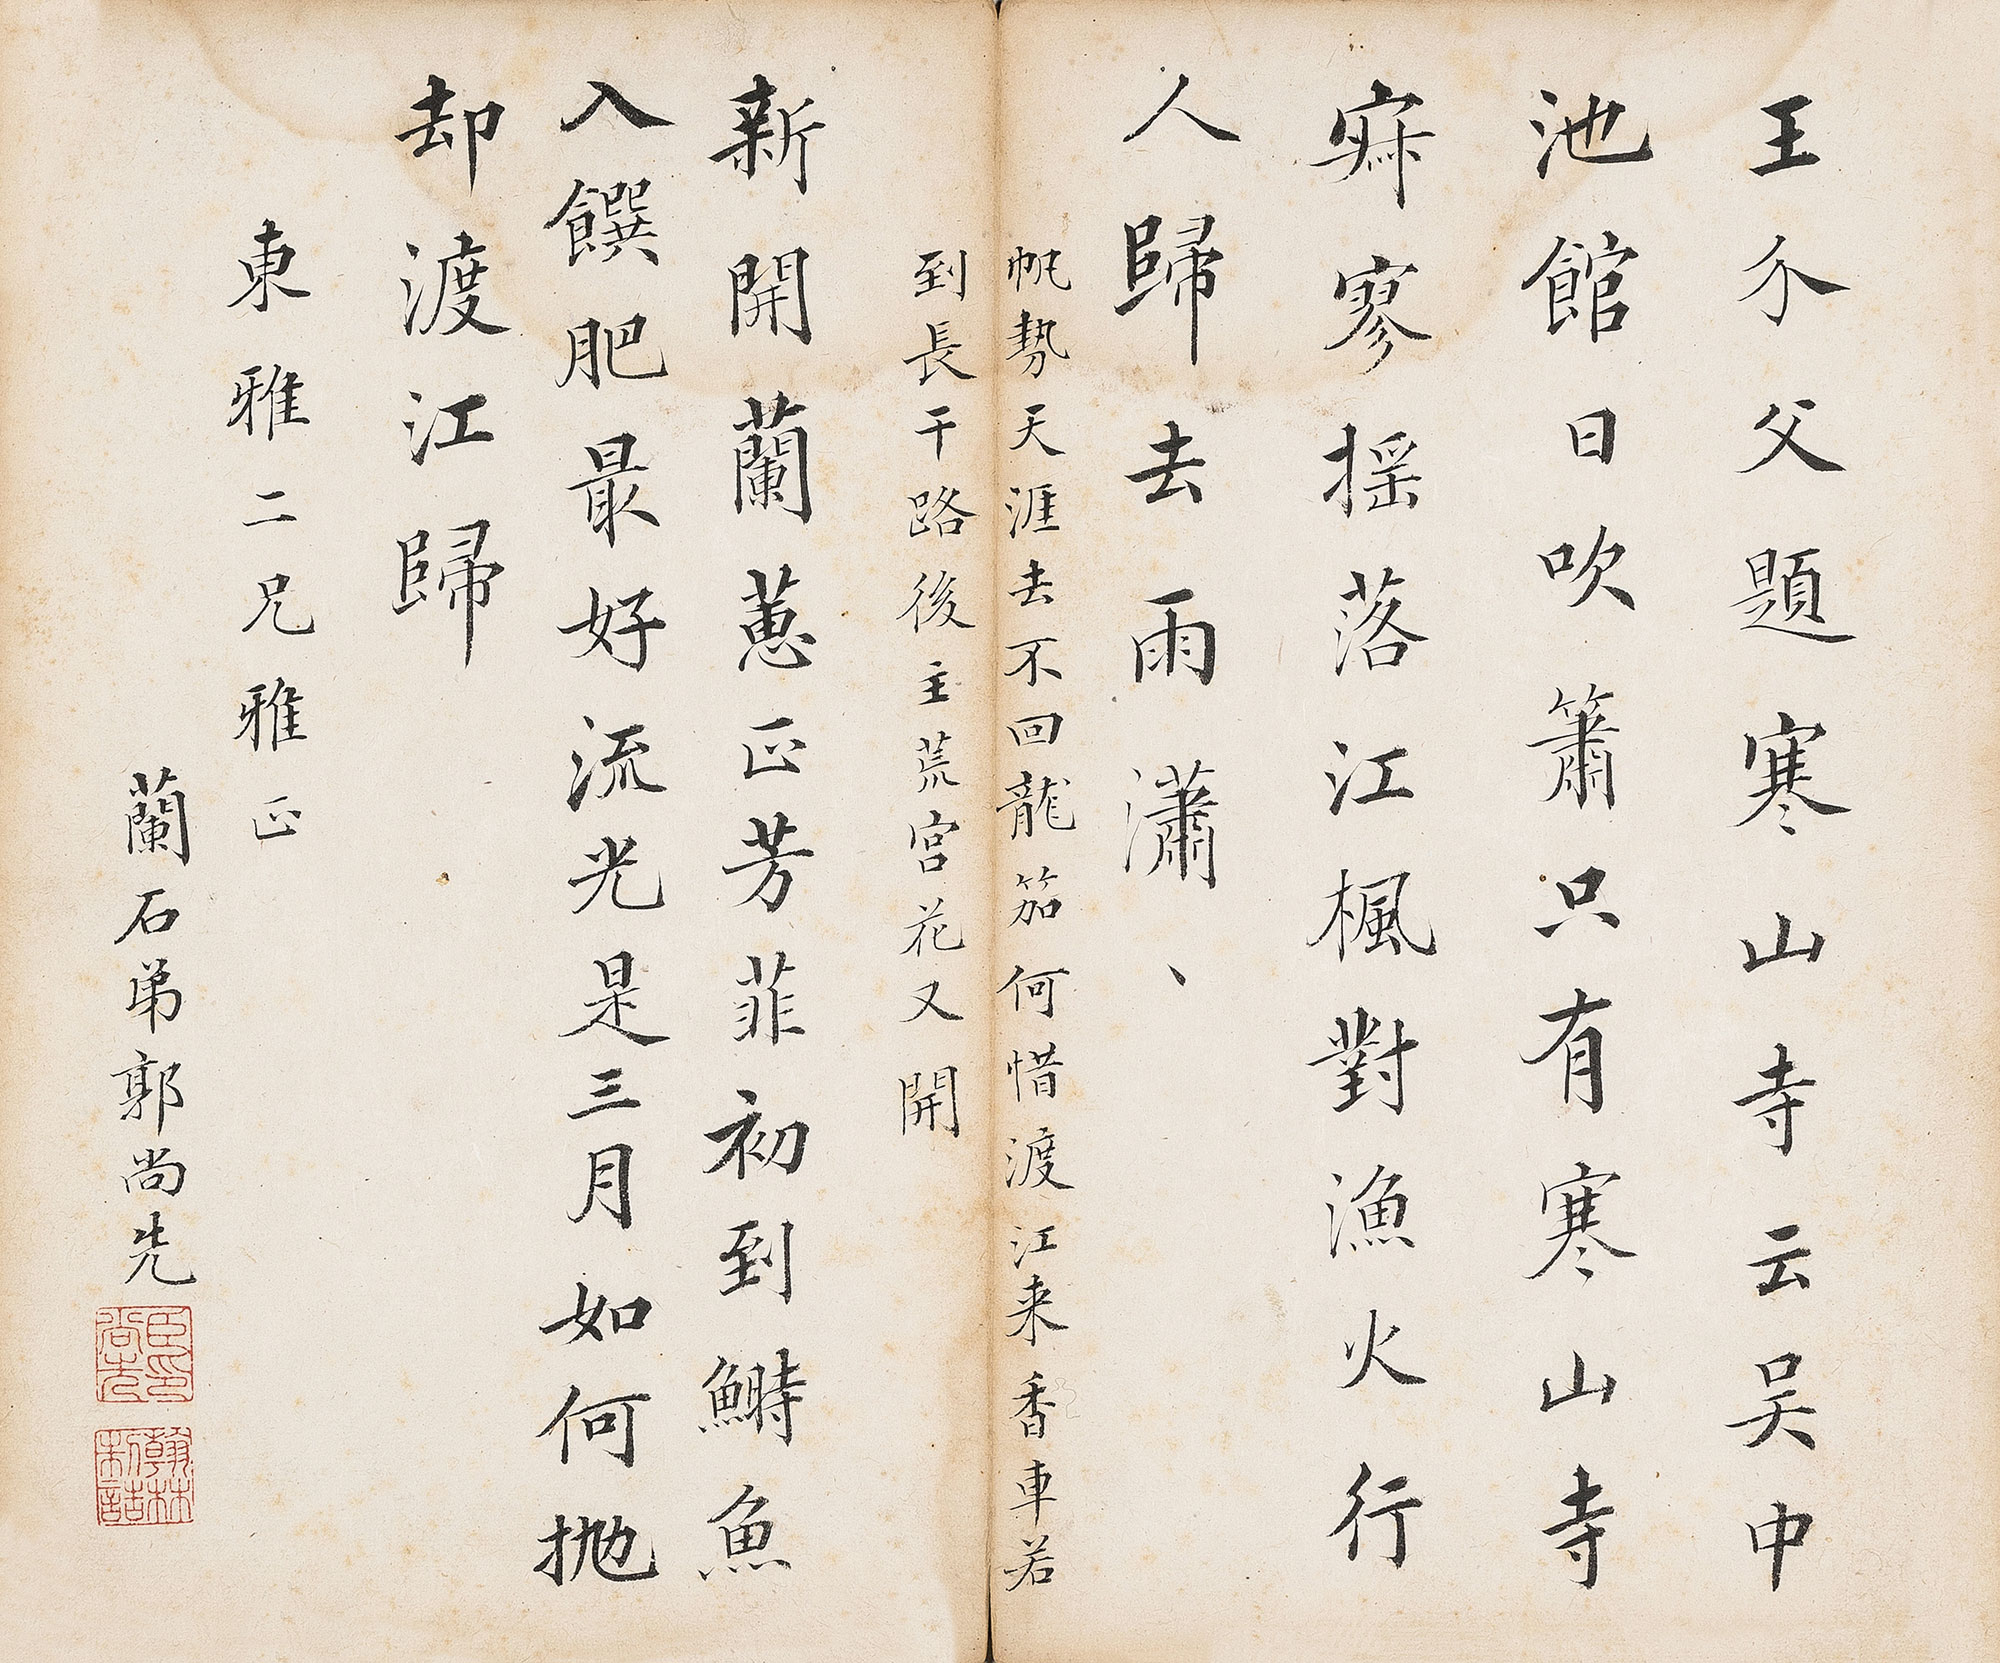 王介父題寒山寺云吴中
池館日吹簫只有寒山寺
寂寥揺落江楓對漁火行
人歸去雨瀟、
帆勢天涯去不回龍笳何惜渡江来香車若
到長干路後主荒宫花又開
新開蘭蕙正芳菲初到鰣魚
入饌肥最好流光是三月如何抛
却渡江歸
東雅二兄雅正
蘭石弟郭尚先
臣印尚先
翰林制誥